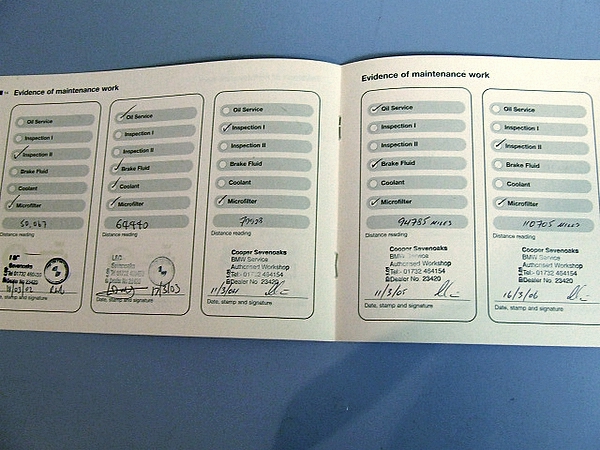 14
Evidence of maintenance work
Oil Service
Inspection I
Inspection II
Brake Fluid
Coolant
Microfilter
50,067
Distance reading
Sevenoaks
Tel 01732 450
Dealer No 23420
Date, stamp and signature
Oil Service
Inspection I
Inspection II
Brake Fluid
Coolant
Microfilter
64440
Distance reading
Date, stamp and signature
17/3/03
Oil Service
Inspection I
Inspection II
Brake Fluid
Coolant
Microfilter
Distance reading
Cooper Sevenoaks
BMW Service
Authorised Workshop
Tel:- 01732 464154
Dealer No. 23420
11/3/04
Date, stamp and signature
Evidence of maintenance work
Oil Service
Inspection I
Inspection II
Brake Fluid
Coolant
Microfilter
94785 MILES
Distance reading
Cooper Sevenoaks
BMW Service
Authorised Workshop
Tel:- 01732 464154
Dealer No. 23420
11/3/05
Date, stamp and signature
Oil Service
Inspection I
Inspection II
Brake Fluid
Coolant
Microfilter
110705 MILES
Distance reading
Cooper Sevenoaks
BMW Service
Authorised Workshop
Tel:- 01732 464154
Dealer No. 23420
16/3/06
Date, stamp and signature